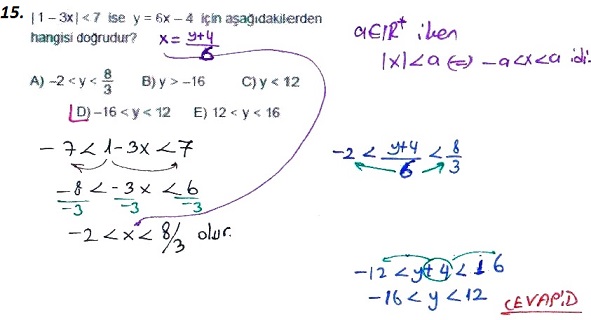 15. |1 − 3x| < 7 ise y = 6x − 4 için aşağıdakilerden
hangisi doğrudur? x = y+4/6
A) −2 < y < 8/3 B) y > −16 C) y < 12
D) −16 < y < 12 E) 12 < y < 16
− 7 < 1 − 3x < 7
−8/−3 < −3x/−3 < 6/−3
−2 < x < 8/3 olur.
a∈IR⁺ iken
|x| < a ⇔ −a < x < a idi.
−2 < y+4/6 < 8/3
−12 < y+4 < 16
−16 < y < 12 CEVAP:D